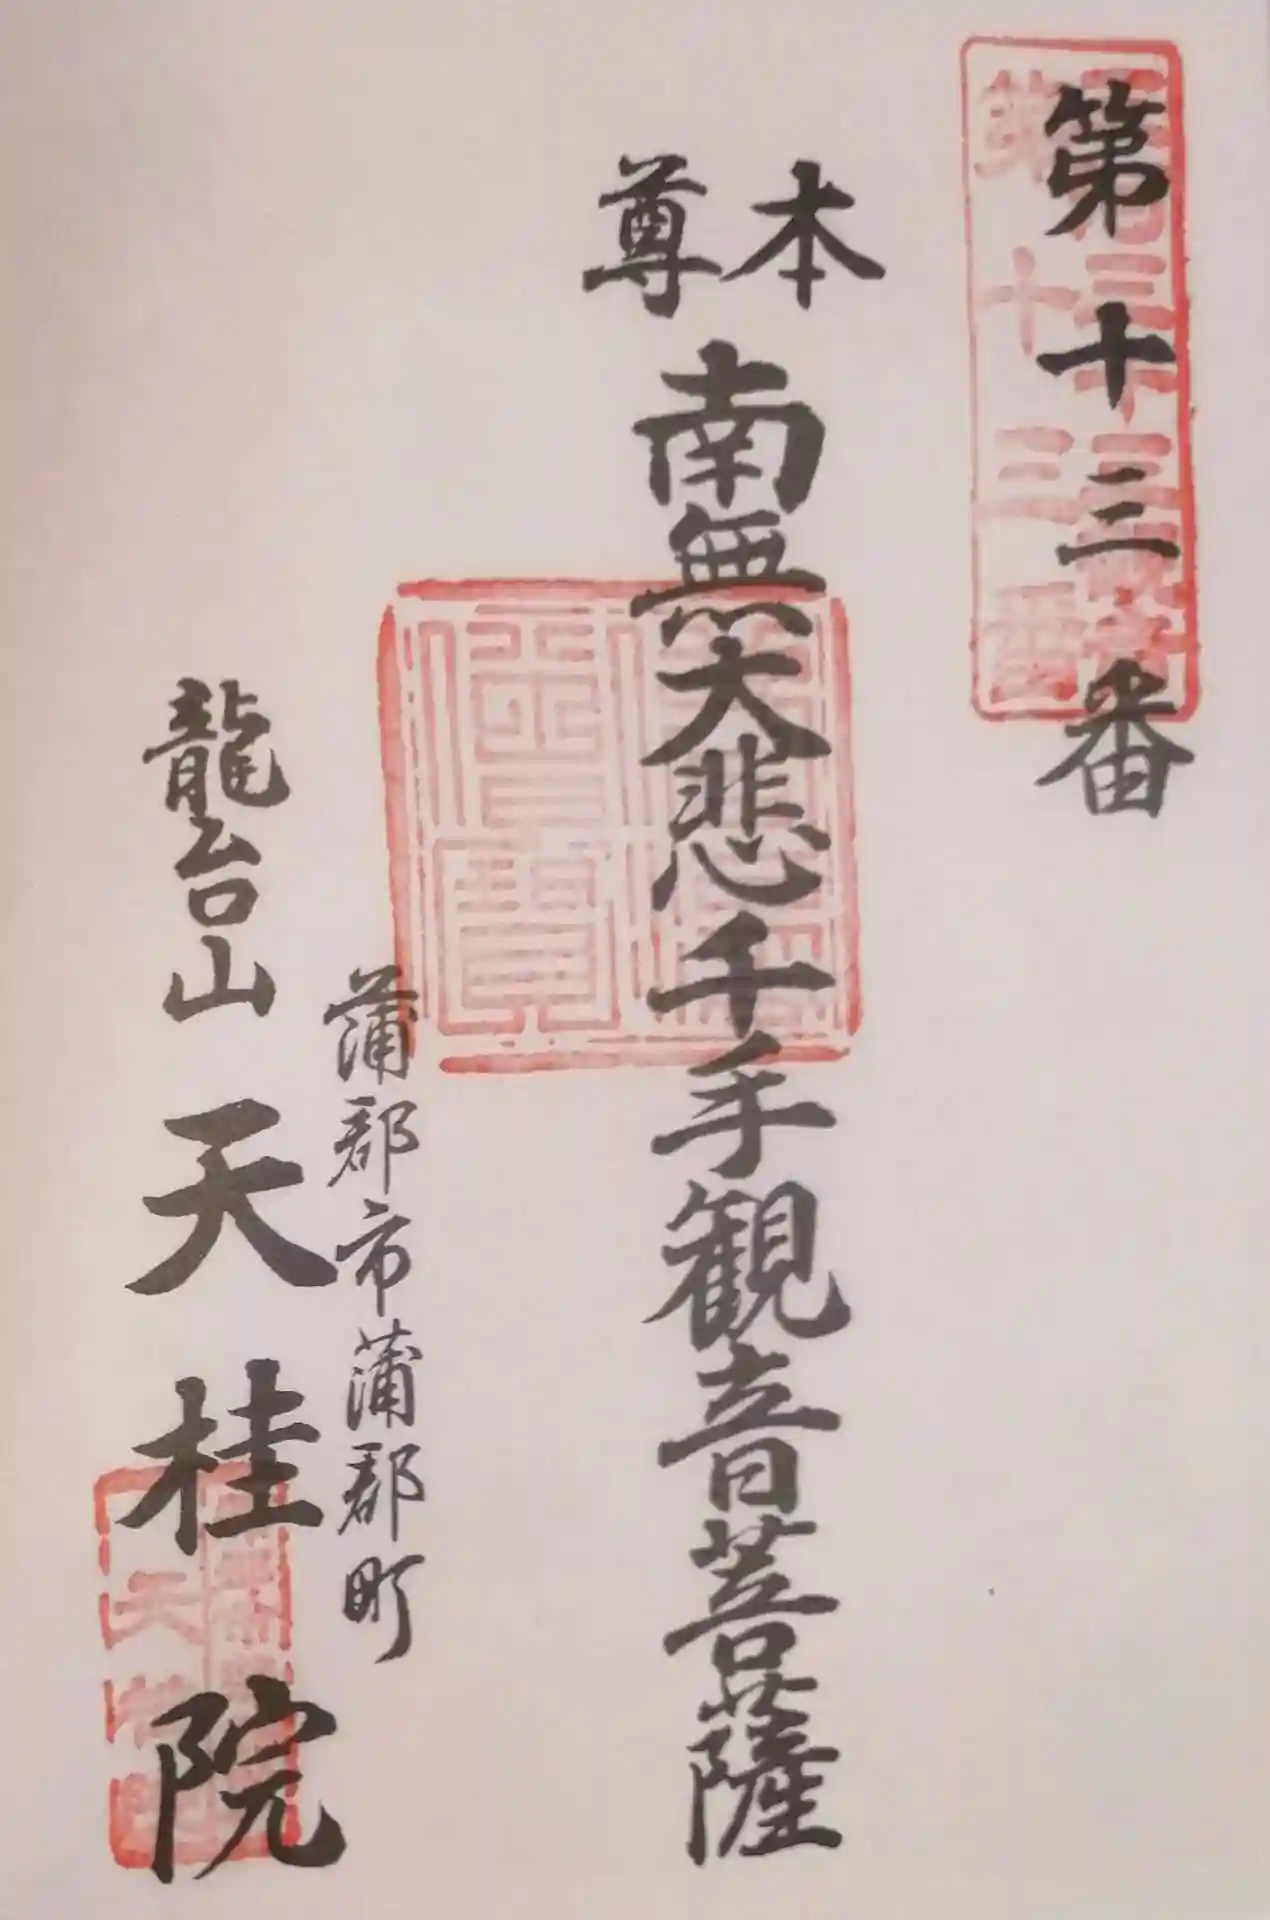 第十三番
本尊
南無大悲千手観音菩薩
蒲郡市蒲郡町
龍台山 天桂院
第十三番
三宝